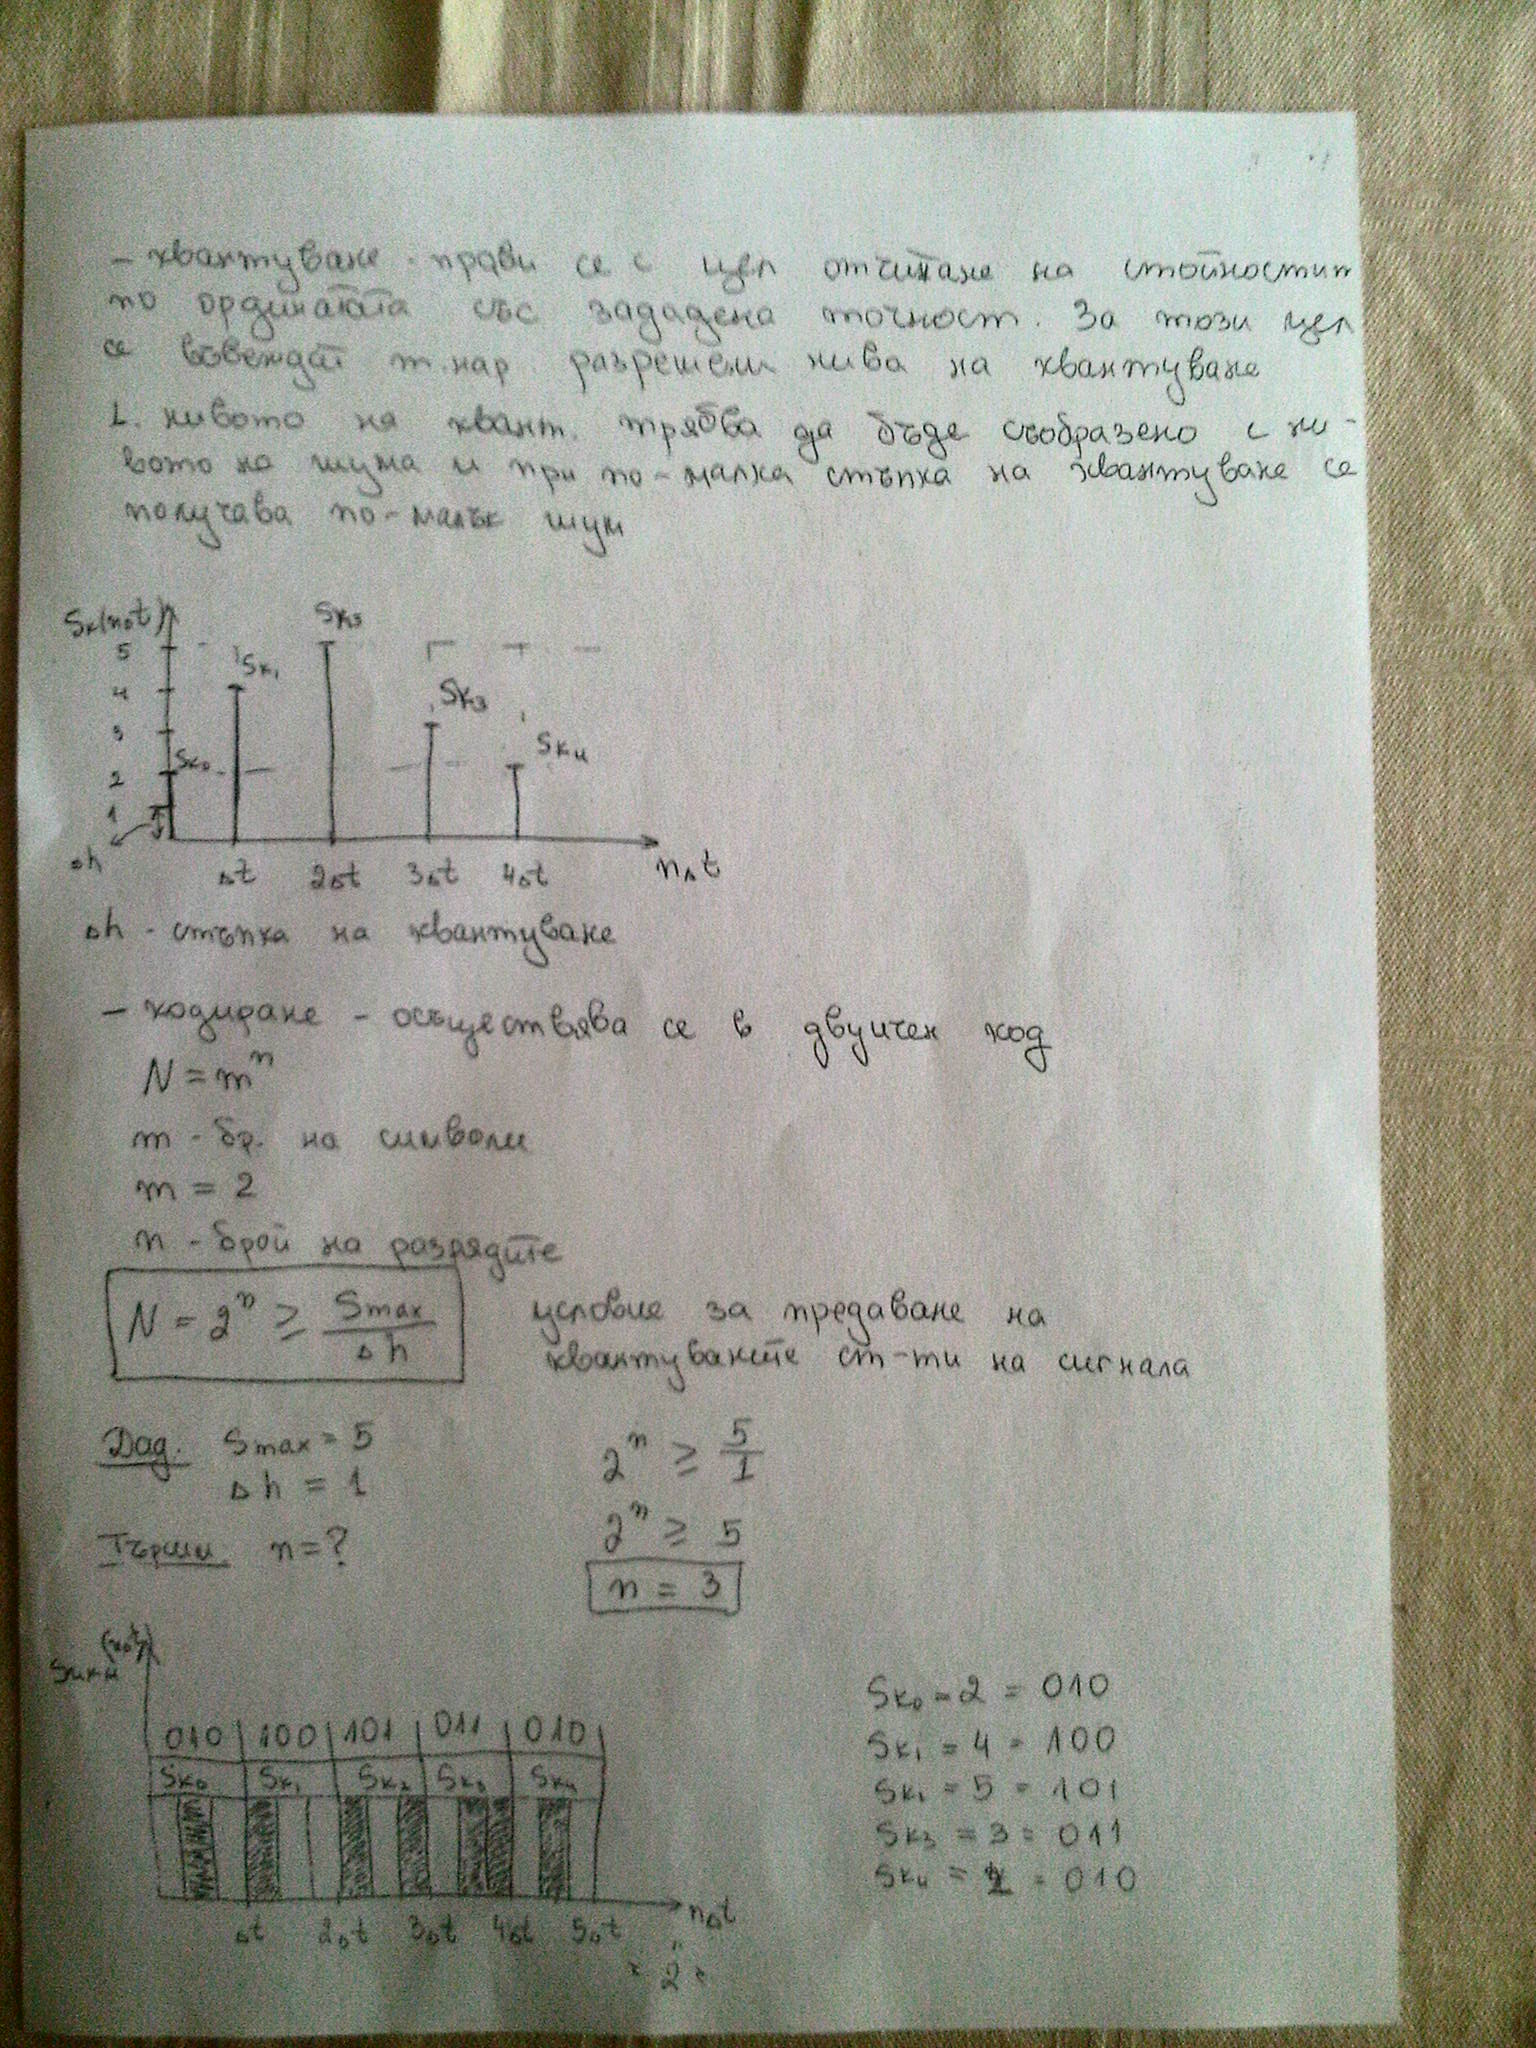 - квантуване - прави се с цел отчитане на стойностит
по ордината̄та със зададена точност. За този цел
се въвеждат т.нар. разрешени нива на квантуване
1. нивото на квант. трябва да бъде съобразено с ни-
вото на шума и при по-малка стъпка на квантуване се
получава по-малък шум
Sк(nΔt)
Sк3
5
Sк1
4
Sк3
3
Sк4
Sк0
2
1
Δh
Δt 2Δt 3Δt 4Δt nΔt
Δh - стъпка на квантуване
- кодиране - осъществява се в двуичен код
N = mⁿ
m - бр. на символи
m = 2
n - брой на разрядите
N = 2ⁿ ≥ Smax / Δh
условие за предаване на
квантуваните ст-ти на сигнала
Дад. Smax = 5
Δh = 1
Търси n = ?
2ⁿ ≥ 5/1
2ⁿ ≥ 5
n = 3
(nΔt)
Sикм
010 100 101 011 010
Sк0 Sк1 Sк2 Sк3 Sк4
Δt 2Δt 3Δt 4Δt 5Δt nΔt
Sк0 = 2 = 010
Sк1 = 4 = 100
Sк1 = 5 = 101
Sк3 = 3 = 011
Sк4 = 2 = 010
"2"